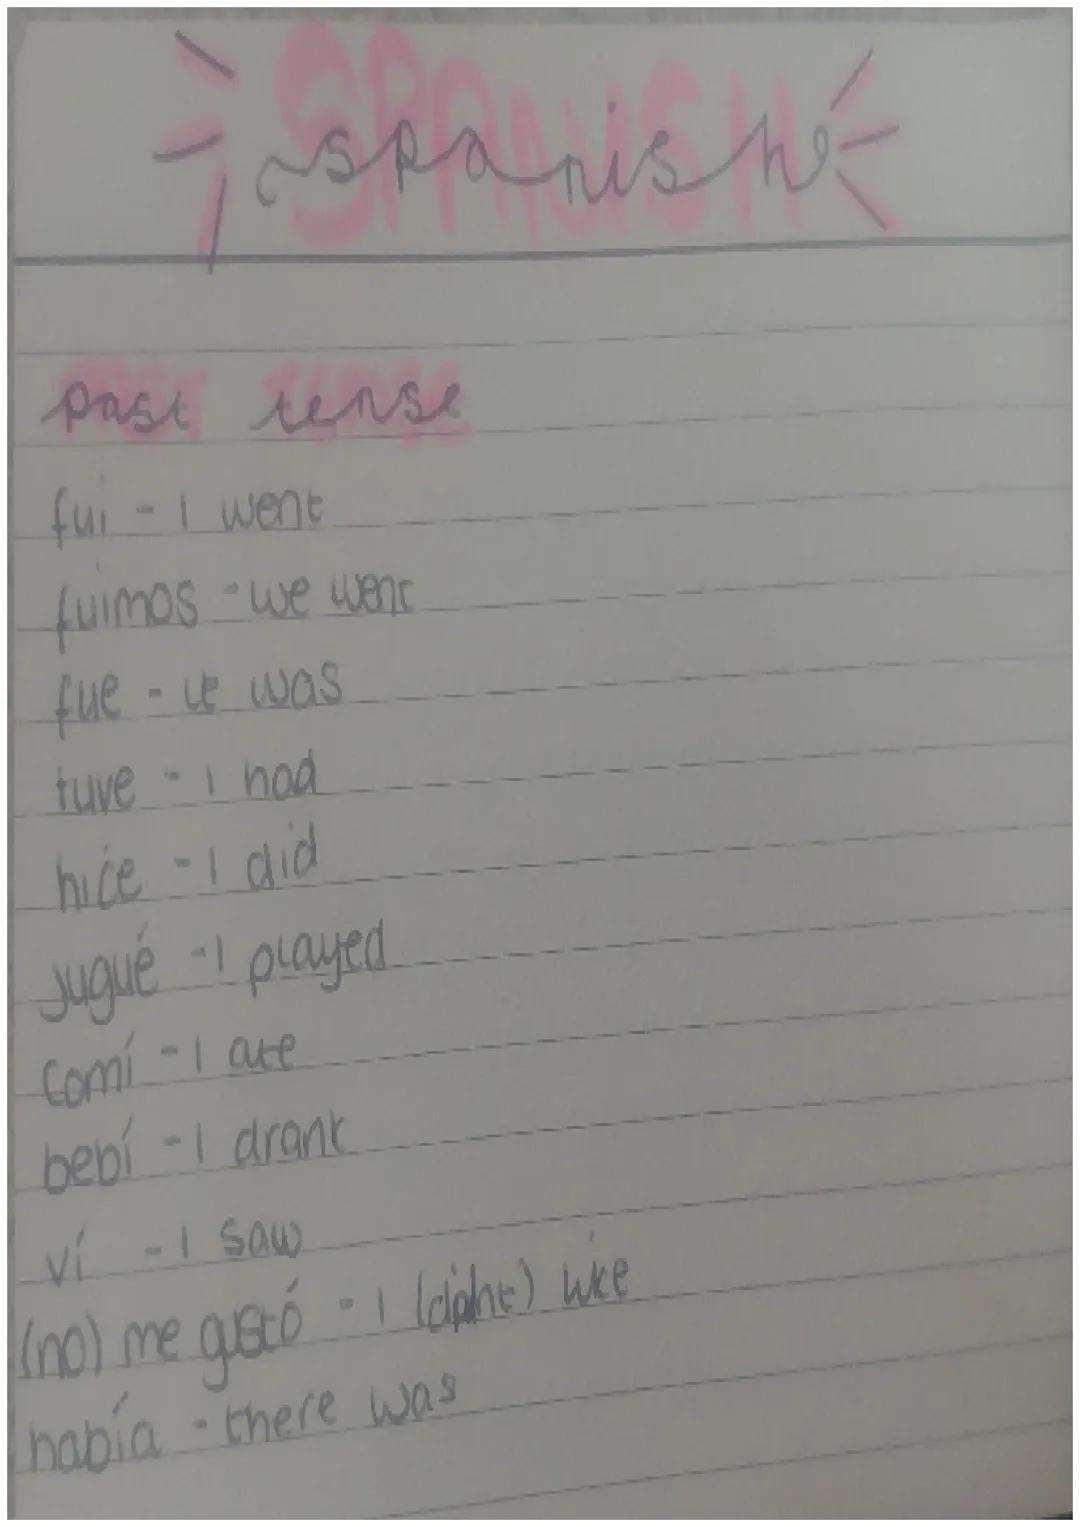 SPANISH
spanish
past tense
fui - I went
fuimos - we went
fue - it was
tuve - I had
hice - I did
jugué - I played
comí - I ate
bebí - I drank
ví - I saw
(no) me gustó - I (didnt) like
había - there was